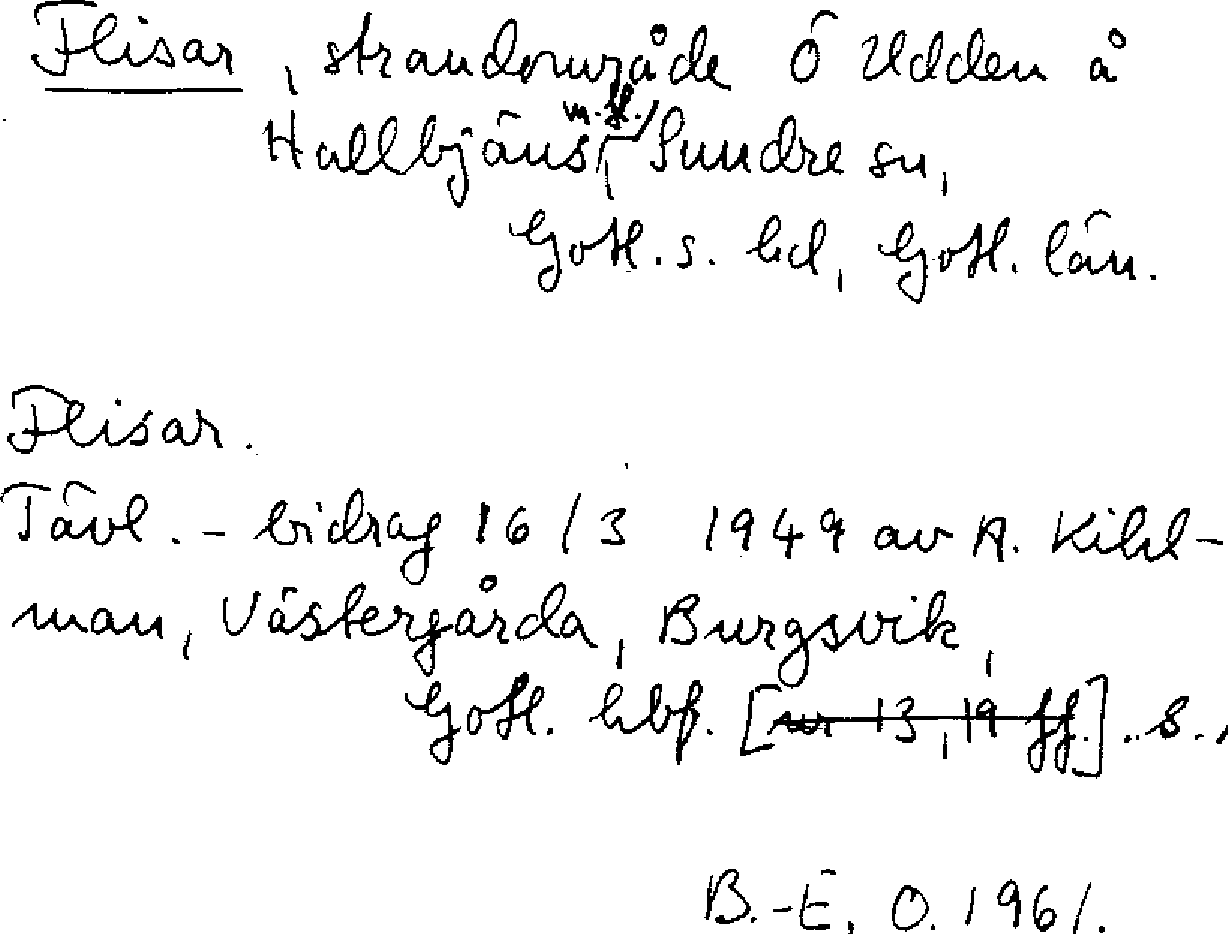 Flisar, strandområde Ö Udden å
Hallbjäns, m.fl. Sundre sn,
Gotl. s. hd, Gotl. län.
Flisar.
Tävl. - bidrag 16/3 1949 av A. Kihl-
man, Västergårda, Burgsvik,
Gotl. hbf. [nr 13, 19 ff.] .. s.,
B.-E. O. 1961.